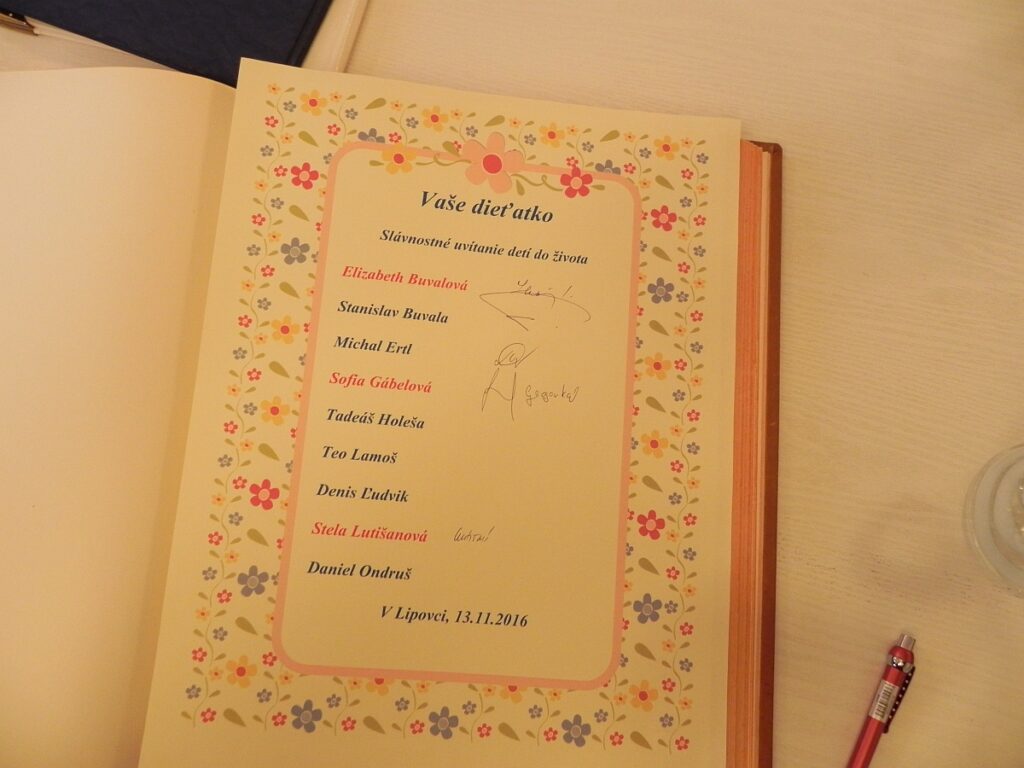 Vaše dieťatko
Slávnostné uvítanie detí do života
Elizabeth Buvalová
Stanislav Buvala
Michal Ertl
Sofia Gábelová
Tadeáš Holeša
Teo Lamoš
Denis Ľudvik
Stela Lutišanová
Daniel Ondruš
V Lipovci, 13.11.2016